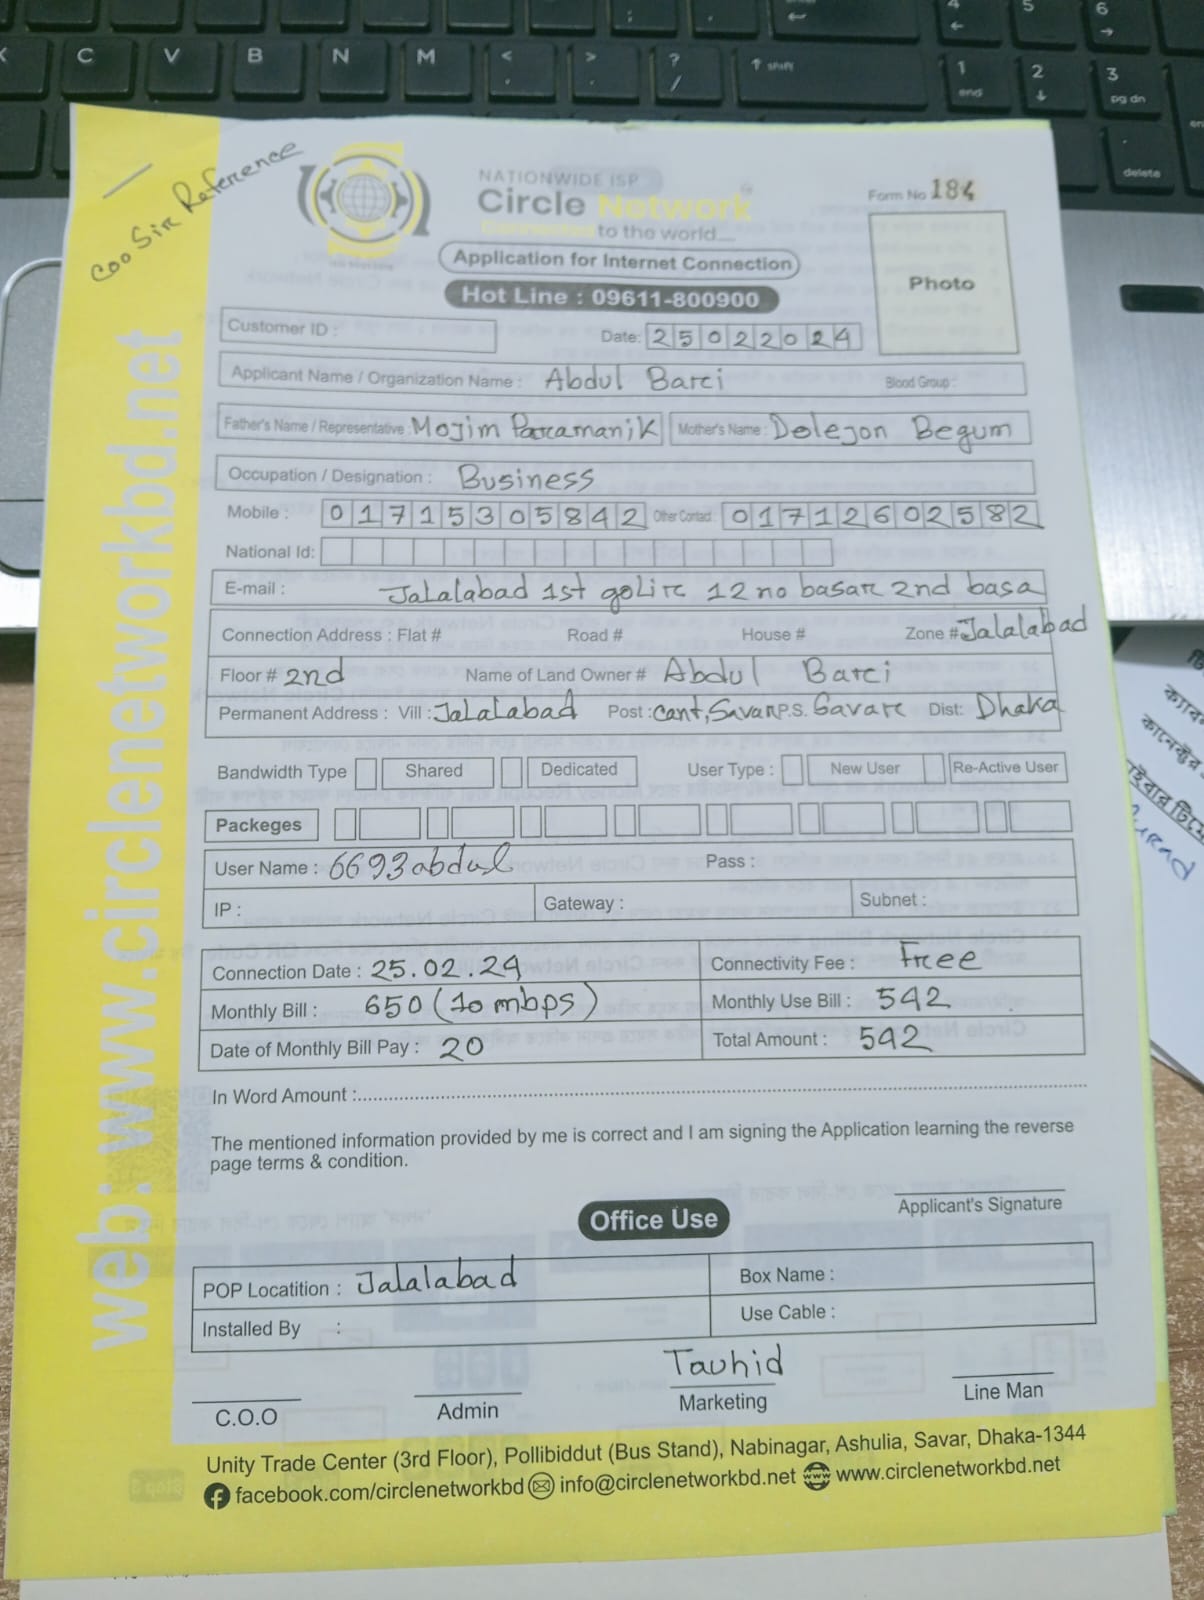 Coo Sir Reference
NATIONWIDE ISP
Circle Network
Connected to the world....
Form No 184
Application for Internet Connection
Hot Line : 09611-800900
Photo
Customer ID :
Date: 25022024
Applicant Name / Organization Name : Abdul Barci Blood Group :
Father's Name / Representative : Mojim Paramanik Mother's Name : Delejon Begum
Occupation / Designation : Business
Mobile : 01715305842 Other Contact : 01712602582
National Id:
E-mail : Jalalabad 1st golir 12 no basar 2nd basa
Connection Address : Flat # Road # House # Zone # Jalalabad
Floor # 2nd Name of Land Owner # Abdul Barci
Permanent Address : Vill : Jalalabad Post : Cant, Savar P.S. Savar Dist: Dhaka
Bandwidth Type Shared Dedicated User Type : New User Re-Active User
Packeges
User Name : 6693abdul Pass :
IP : Gateway : Subnet :
Connection Date : 25.02.24 Connectivity Fee : Free
Monthly Bill : 650 (10 mbps) Monthly Use Bill : 542
Date of Monthly Bill Pay : 20 Total Amount : 542
In Word Amount :
The mentioned information provided by me is correct and I am signing the Application learning the reverse
page terms & condition.
Applicant's Signature
Office Use
POP Locatition : Jalalabad Box Name :
Installed By : Use Cable :
Tauhid
C.O.O Admin Marketing Line Man
Unity Trade Center (3rd Floor), Pollibiddut (Bus Stand), Nabinagar, Ashulia, Savar, Dhaka-1344
facebook.com/circlenetworkbd info@circlenetworkbd.net www.circlenetworkbd.net
web: www.circlenetworkbd.net